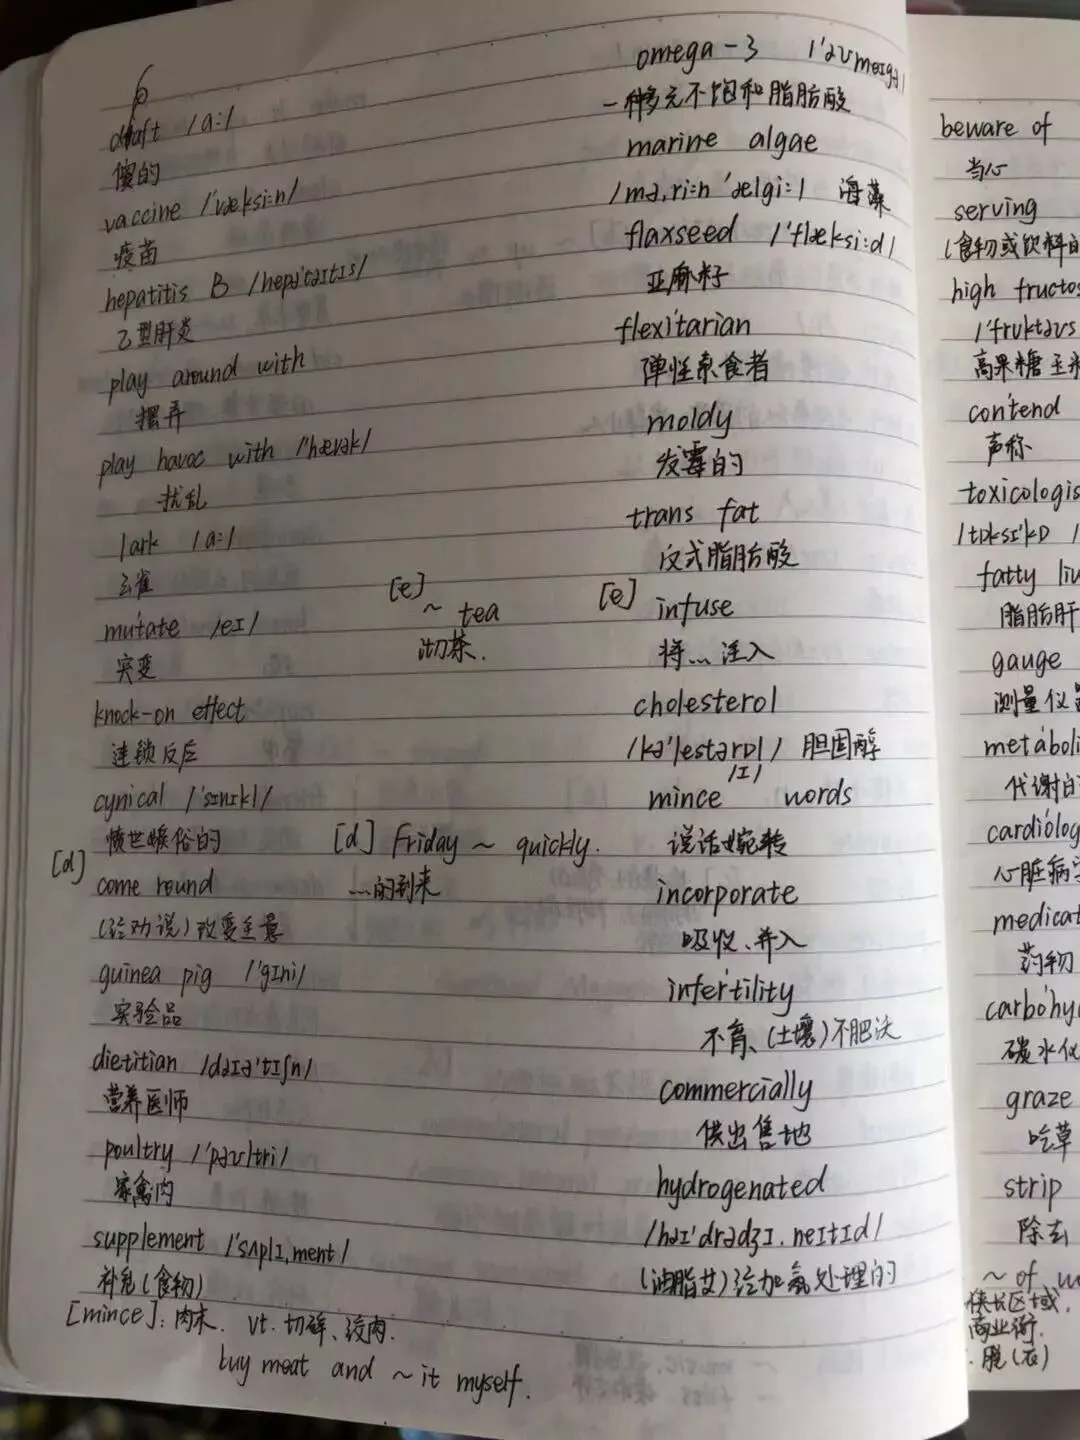 daft /a:/
傻的
vaccine /'væksi:n/
疫苗
hepatitis B /hepə'taɪtɪs/
乙型肝炎
play around with
摆弄
play havoc with /'hævək/
扰乱
lark /a:/
云雀
mutate /eɪ/
突变
knock-on effect
连锁反应
cynical /'sɪnɪkl/
愤世嫉俗的
[d]
come round
(经劝说)改变主意
guinea pig /'gɪni/
实验品
dietitian /daɪə'tɪʃn/
营养医师
poultry /'pəʊltri/
家禽肉
supplement /'sʌplɪ,ment/
补充(食物)
[mince]: 肉末. vt. 切碎、绞肉.
buy meat and ~ it myself.
[e] ~ tea
沏茶.
[d] Friday ~ quickly.
...的到来
omega-3 /'əʊmeɪgə/
一种多元不饱和脂肪酸
marine algae
/mə,ri:n 'ælgi:/ 海藻
flaxseed /'flæksi:d/
亚麻籽
flexitarian
弹性素食者
moldy
发霉的
trans fat
反式脂肪酸
[e] infuse
将...注入
cholesterol
/kə'lestərɒl/ 胆固醇
/ɪ/
mince words
说话婉转
incorporate
吸收、并入
infertility
不育、(土壤)不肥沃
commercially
供出售地
hydrogenated
/haɪ'drədʒɪ.neɪtɪd/
(油脂)经加氢处理的
beware of
当心
serving
(食物或饮料的
high fructos
/'frʌktəʊs
高果糖玉米
contend
声称
toxicologis
/tɒksɪ'kɒ
fatty liv
脂肪肝
gauge
测量仪器
metaboli
代谢的
cardiolog
心脏病学
medicat
药物
carbohy
碳水化
graze
吃草
strip
除去
~ of
狭长区域.
商业街.
脱(衣)